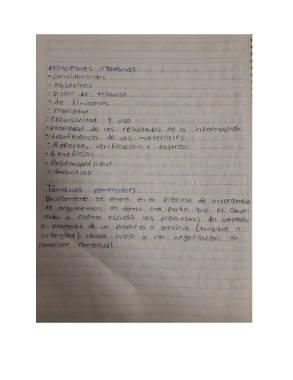 Principales Clausulas
• considerandos
- objetivos
- plan de trabajo
• de finiciones
- Propiedad
- exclusividad y uso
- propiedad de los resultados de la información
• transferencia de los materiales
- Reporte, verificación y rastreo
- Beneficios
- Responsabilidad
- Garantías
Términos comerciales
Basicamente se centra en el proceso de intercambio
de argumentos en donde una parte que el compra
rador o cliente escucha las propuestas del vendedor
o proveedor de un producto o servicio (tangible e
intangible) dando inicio a una negociación de
caracter comercial.